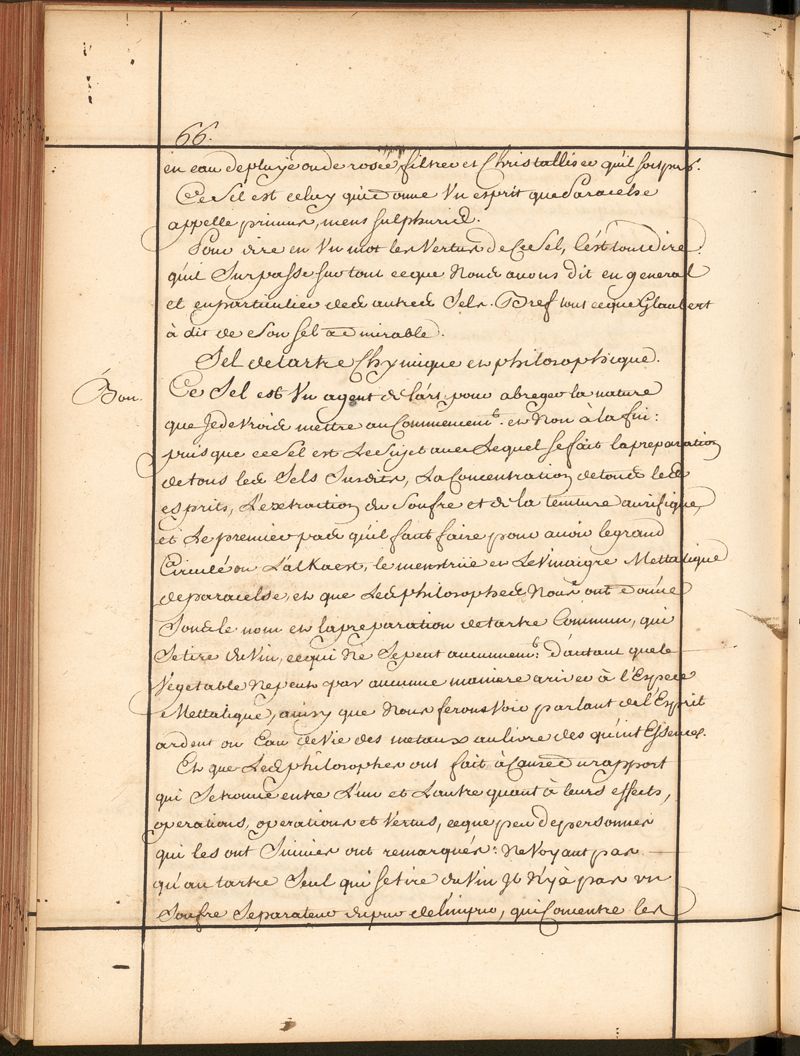 66.
en eau de pluÿe ou de rosée, filtrer et Christalliser qu'il soit pur.
Ce Sel est celuy qui donne Un esprit que Paracelse
appelle primus, mens sulphuris.
Pour dire en Un mot les Vertus de Ce Sel, C'est tout dire
qu'il Surpasse sur tout ce que Nous avons dit en general
et en particulier des autres Sels. Bref tout ce que Glaubert
à dit de Son Sel admirable.
Sel de tartre Chymique et philosophique.
Bon.
Ce Sel est Un agent de l'art pour abreger la nature
que Je devrois mettre au Commencemt. et Non à la fin:
puis que ce Sel est Le Sujet avec Lequel se fait la preparation
de tous les Sels Susdits, La Concentration de tous les
esprits, L'extraction du Soufre et de la teinture aurifique,
et Le premier pas qu'il faut faire pour avoir le grand
Circulé ou L'alKaest, le menstrüe et Le Vinaigre Mettalique
de paracelse, et que Les philosophes Nous ont donné
Sous le nom et la preparation de tartre Commun, qui
Se tire du Vin, ce qui Ne Se peut aucunement: d'autant que le
Vegetable Ne peut par aucune maniere ariver à l'Espece
Mettalique, ainsy que Nous ferons Voir parlant de l'Esprit
ardent ou Eau de Vie des metaux au livre des quint Essences.
Et que Les philosophes ont fait à Cause du rapport
qui Se trouve entre L'un et L'autre quant à leurs effects,
operations, operations et Vertus, ce que peu de personnes
qui les ont Suivies ont remarqués: Ne Voyant pas
qu'au tartre Seul qui se tire du Vin Jl N'y à pas un
Soufre Separateur du pur de l'impur, qui Concentre les